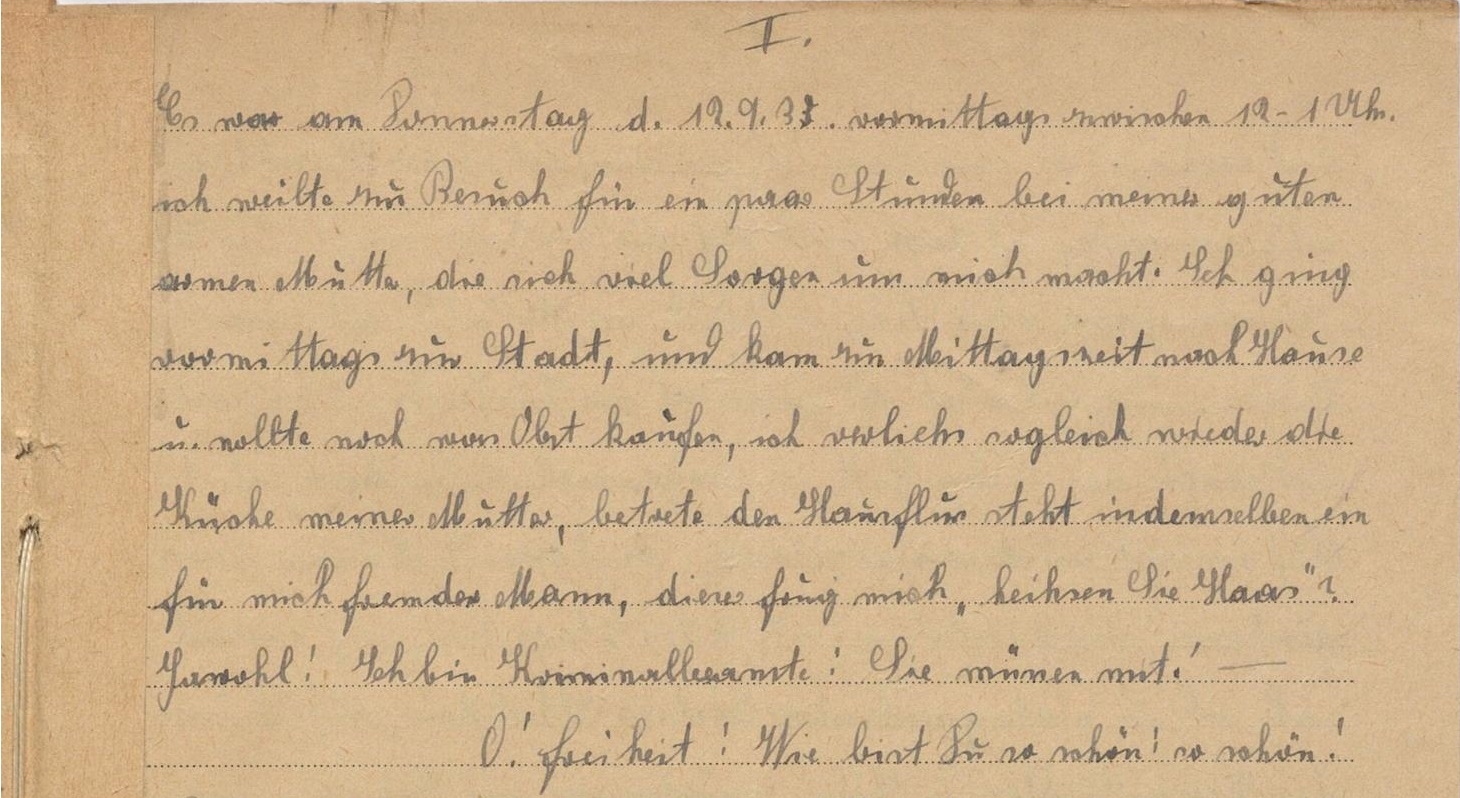 I.
Es war am Donnerstag d. 12.9.33. vormittags zwischen 12 - 1 Uhr.
ich weilte zu Besuch für ein paar Stunden bei meiner guten
armen Mutter, die sich viel Sorgen um mich macht. Ich ging
vormittags zur Stadt, und kam zur Mittagszeit nach Hause
u. wollte noch was Obst kaufen, ich verliehs sogleich wieder die
Küche meiner Mutter, betrete den Hausflur steht indemselben ein
für mich fremder Mann, dieser frug mich „heihsen Sie Haas"?
Jawohl! Ich bin Kriminalbeamte! Sie müssen mit! —
O! freiheit! Wie bist Du so schön! so schön!